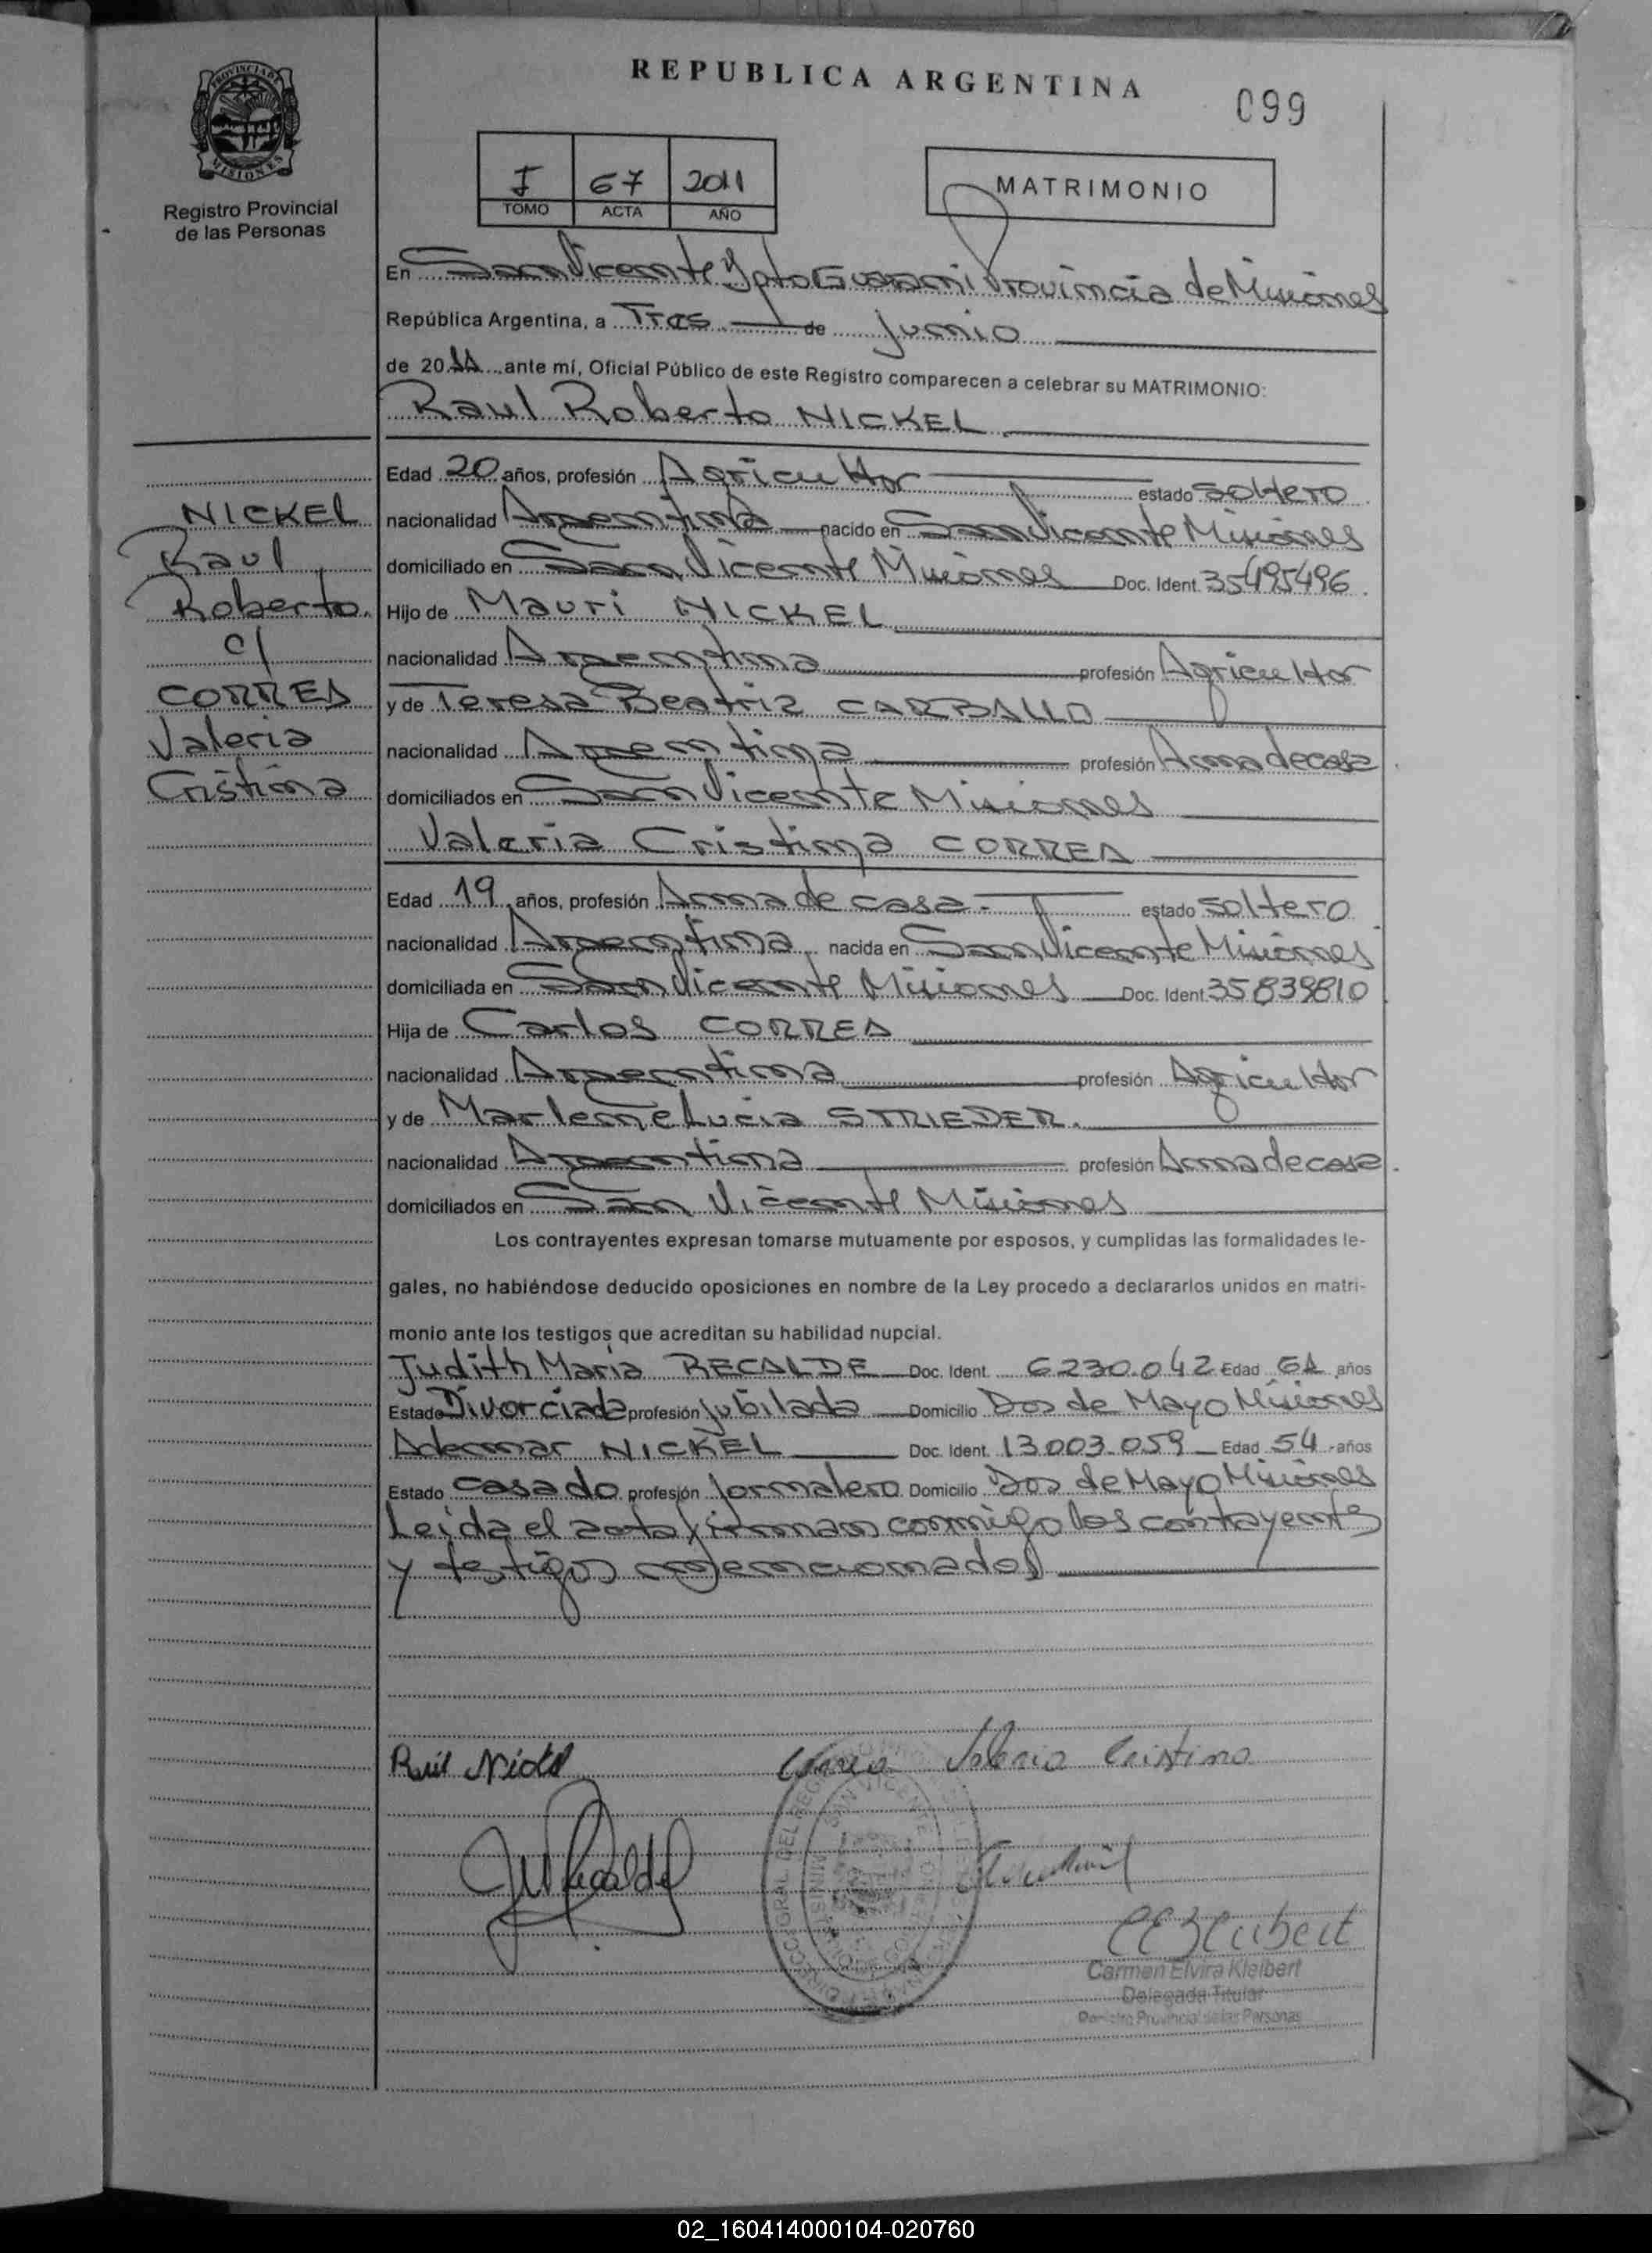 REPUBLICA ARGENTINA
099
PROVINCIA DE MISIONES
Registro Provincial
de las Personas
I 67 2011
TOMO ACTA AÑO
MATRIMONIO
En San Vicente Dpto Guarani Provincia de Misiones
República Argentina, a Tres de Junio
de 2011 ante mí, Oficial Público de este Registro comparecen a celebrar su MATRIMONIO:
Raul Roberto NICKEL
NICKEL
Raul
Roberto
c/
CORREA
Valeria
Cristina
Edad 20 años, profesión Agricultor estado Soltero
nacionalidad Argentina nacido en San Vicente Misiones
domiciliado en San Vicente Misiones Doc. Ident. 35495496
Hijo de Mauri NICKEL
nacionalidad Argentina profesión Agricultor
y de Teresa Beatriz CARBALLO
nacionalidad Argentina profesión Ama de casa
domiciliados en San Vicente Misiones
Valeria Cristina CORREA
Edad 19 años, profesión Ama de casa - estado Soltero
nacionalidad Argentina nacida en San Vicente Misiones
domiciliada en San Vicente Misiones Doc. Ident. 35839810
Hija de Carlos CORREA
nacionalidad Argentina profesión Agricultor
y de Marlene Lucia STRIEDER.
nacionalidad Argentina profesión Ama de casa
domiciliados en San Vicente Misiones
Los contrayentes expresan tomarse mutuamente por esposos, y cumplidas las formalidades le-
gales, no habiéndose deducido oposiciones en nombre de la Ley procedo a declararlos unidos en matri-
monio ante los testigos que acreditan su habilidad nupcial.
Judith Maria RECALDE Doc. Ident. 6230.042 Edad 61 años
Estado Divorciada profesión Jubilada Domicilio Dos de Mayo Misiones
Ademar NICKEL Doc. Ident. 13.003.059 Edad 54 años
Estado Casado profesión Jornalero Domicilio Dos de Mayo Misiones
Leida el acta firman conmigo los contrayentes
y testigos
Raúl Nickel
Correa Valeria Cristina
Carmen Elvira Kleibert
Delegada Titular
Registro Provincial de las Personas
02_160414000104-020760